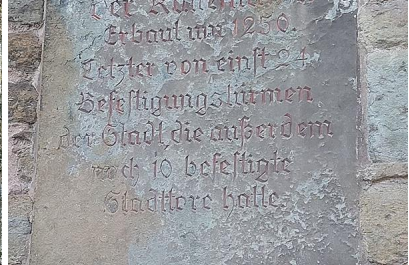 Der
Erbaut um 1250.
Letzter von einst 24
Befestigungstürmen
der Stadt, die außerdem
noch 10 befestigte
Stadttore hatte.